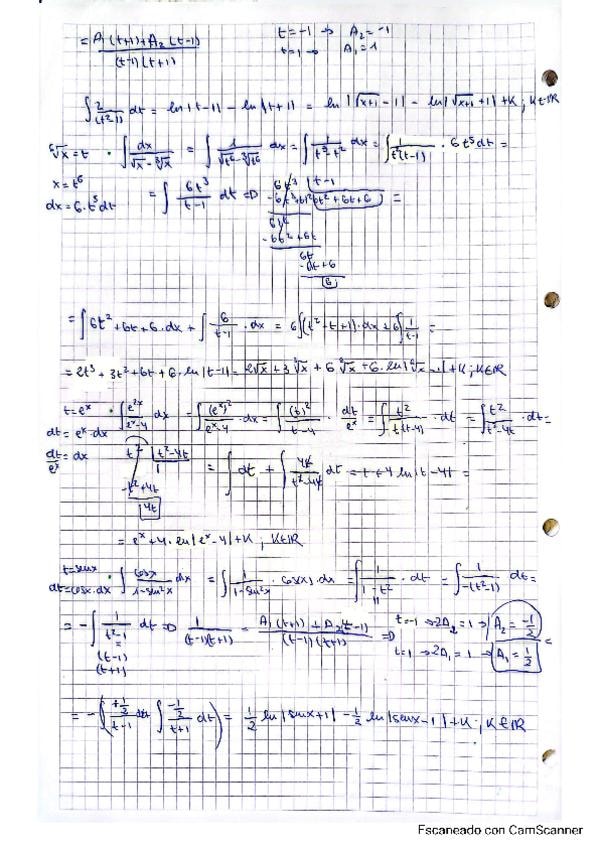 = A₁(t+1)+A₂(t-1) / (t-1)(t+1)   t=-1 → A₂=-1
t=1 → A₁=1
∫ 2/(t²-1) dt = ln|t-1| - ln|t+1| = ln|√(x+1) -1| - ln|√(x+1) +1| + K ; K∈ℝ
⁶√x = t · ∫ dx/(√x - ³√x) = ∫ 1/(√t⁶ - ³√t⁶) dx = ∫ 1/(t³-t²) dx = ∫ 1/(t²(t-1)) · 6t⁵dt =
x=t⁶
dx=6·t⁵dt   = ∫ 6t³/(t-1) dt ⇒   6t³ | t-1
-6t³+6t²   6t²+6t+6 =
6t²
-6t²+6t
6t
-6t+6
6
= ∫ 6t²+6t+6·dx + ∫ 6/(t-1) ·dx = 6∫(t²+t+1)·dx + 6∫ 1/(t-1) =
= 2t³+3t²+6t+6·ln|t-1| = 2√x + 3 ³√x + 6 ⁶√x + 6·ln|⁶√x -1| + K ; K∈ℝ
t=eˣ · ∫ e²ˣ/(eˣ-4) dx = ∫ (eˣ)²/(eˣ-4) ·dx = ∫ (t)²/(t-4) · dt/eˣ = ∫ t²/(t(t-4)) ·dt = ∫ t²/(t²-4t) ·dt =
dt=eˣ·dx
dt/eˣ = dx   t² | t²-4t   = ∫dt + ∫ 4t/(t²-4t) dt = t+4 ln|t-4| =
1
-t²+4t
4t
= eˣ+4·ln|eˣ-4|+K ; K∈ℝ
t=senx · ∫ cosx/(1-sen²x) dx = ∫ 1/(1-sen²x) · cos(x)·dx = ∫ 1/(1-t²) ·dt = ∫ 1/(-(t²-1)) dt =
dt=cosx·dx
= -∫ 1/(t²-1) dt ⇒ 1/((t-1)(t+1)) = A₁(t+1)+A₂(t-1) / (t-1)(t+1) ⇒   t=-1 → 2A₂=1 → A₂=-1/2
(t-1)
(t+1)   t=1 → 2A₁=1 → A₁=1/2 =
= -(∫ +1/2/(t-1) dt ∫ -1/2/(t+1) dt) = 1/2 ln|senx+1| - 1/2 ln|senx-1| + K ; K∈ℝ
Escaneado con CamScanner